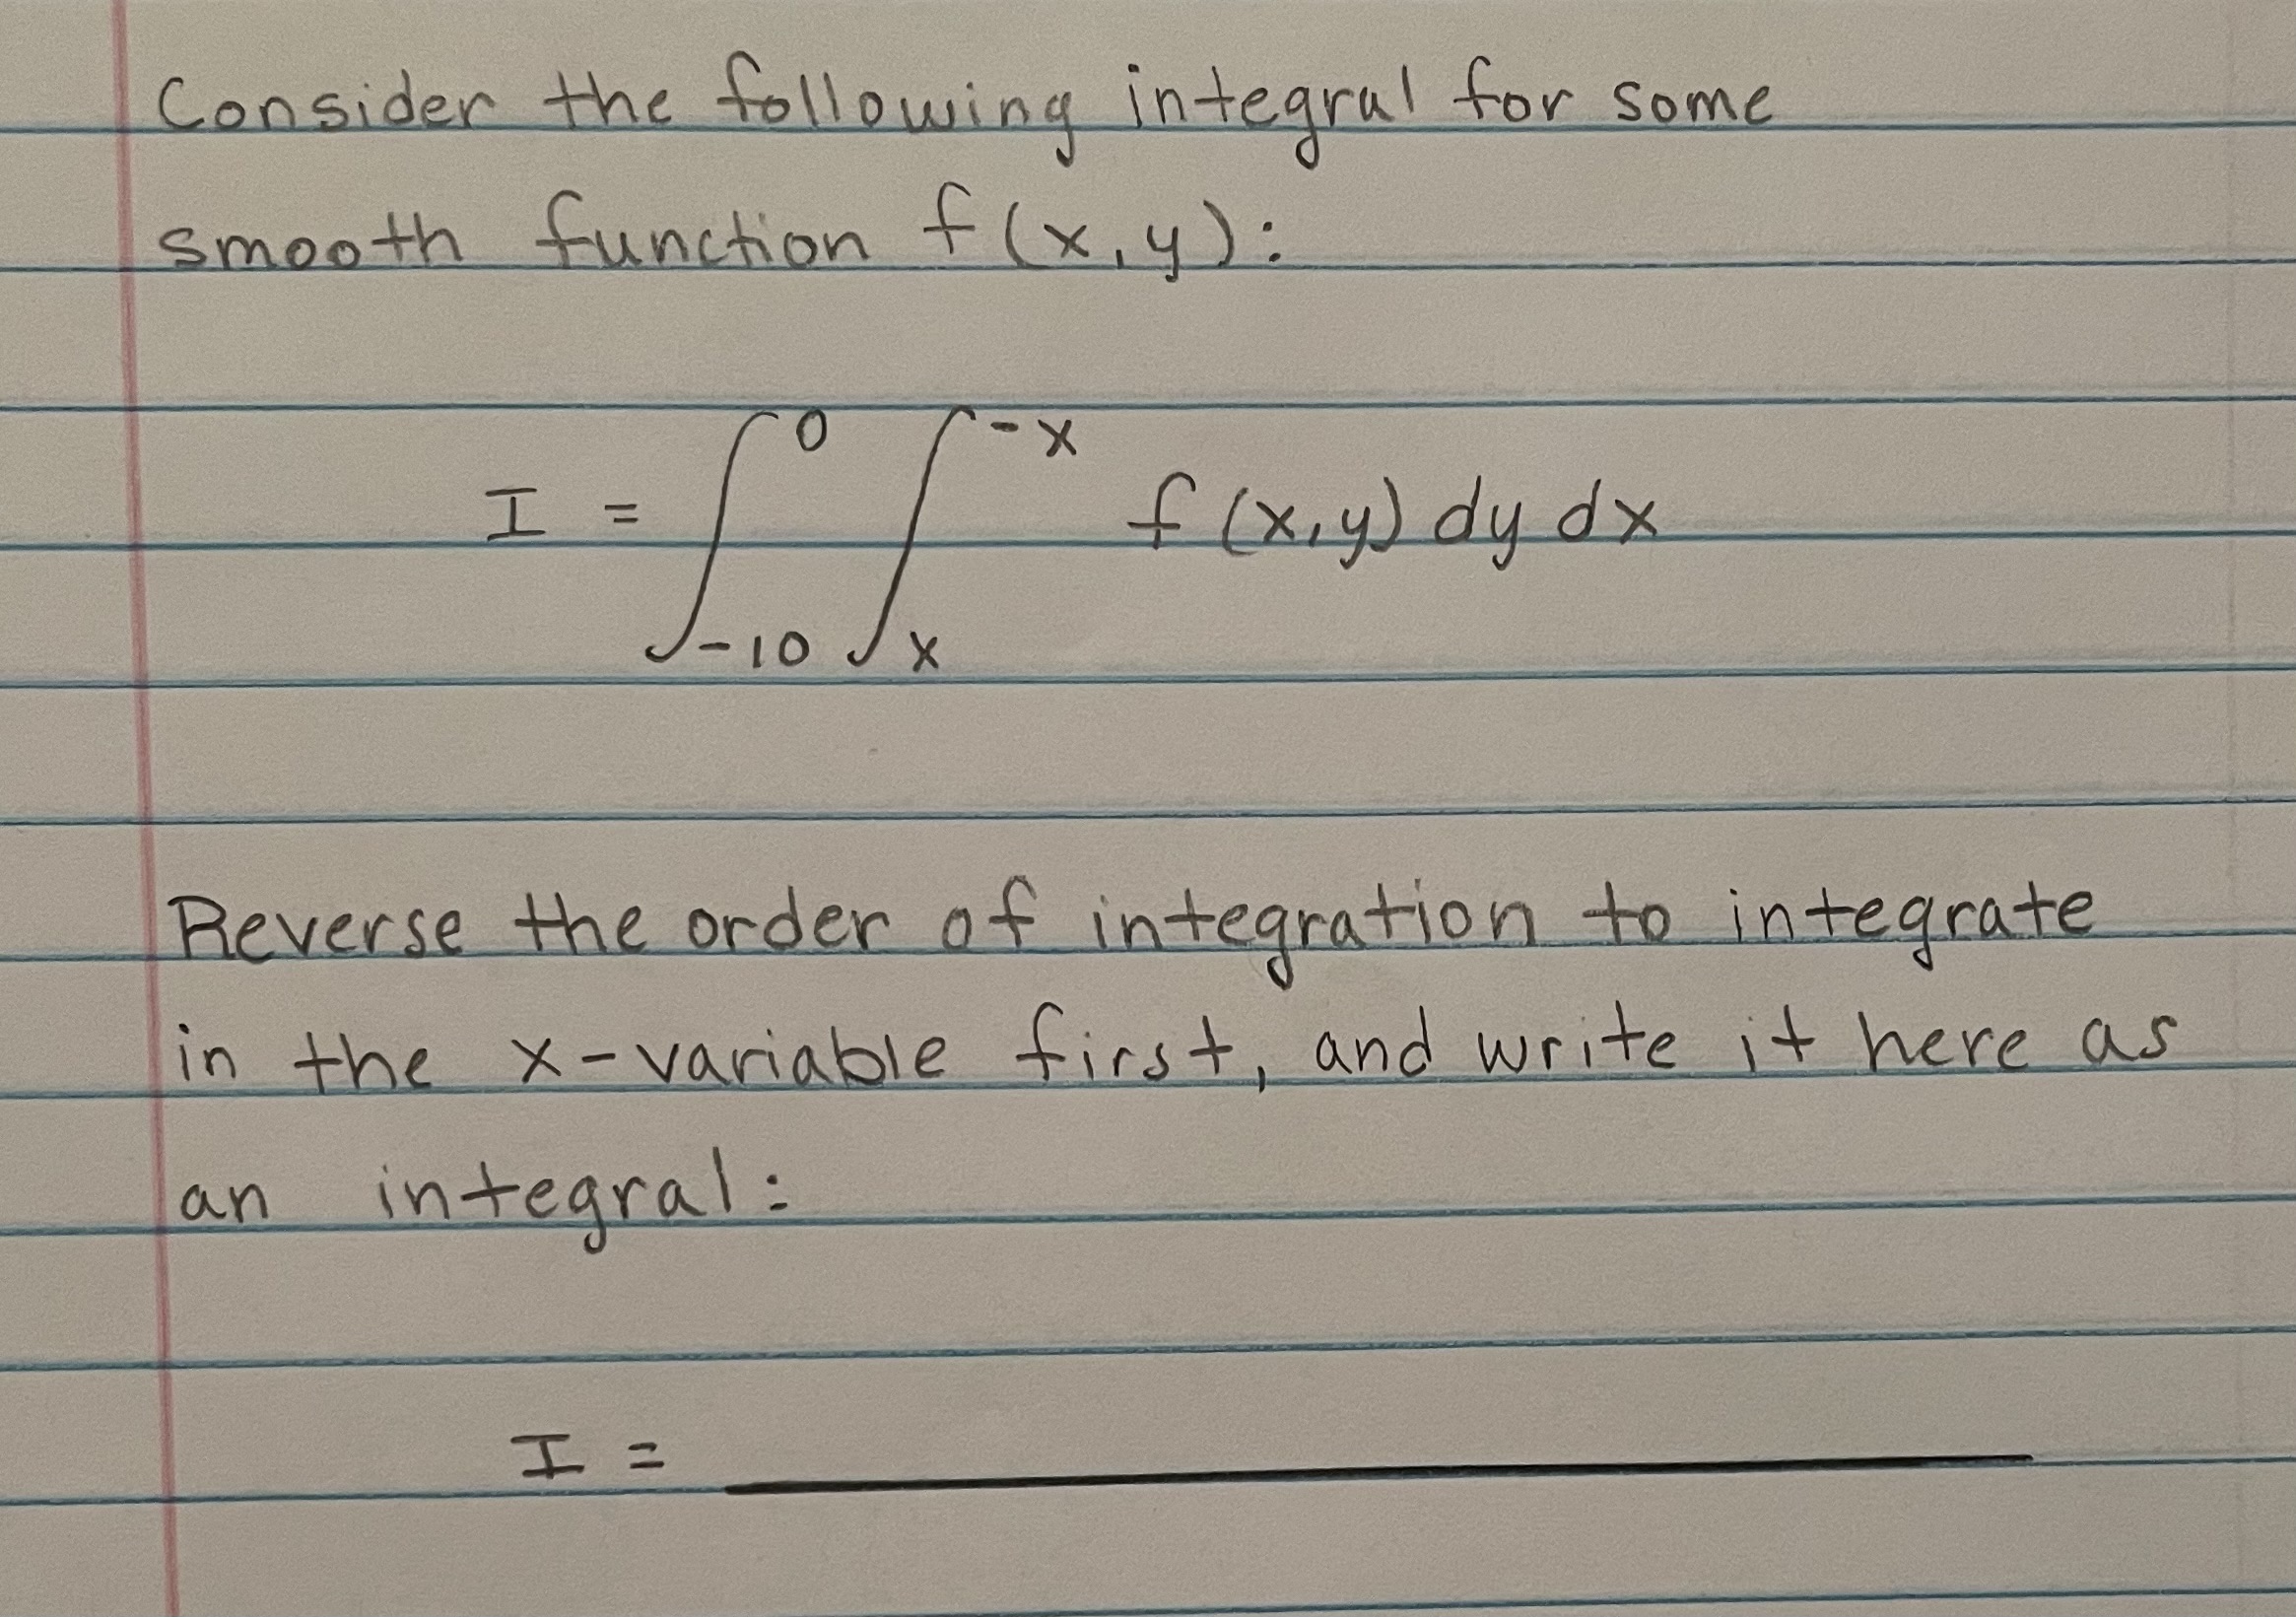 Consider the following integral for some
smooth function f(x,y):
I = ∫_{-10}^{0} ∫_{x}^{-x} f(x,y) dy dx
Reverse the order of integration to integrate
in the x-variable first, and write it here as
an integral:
I = ____________